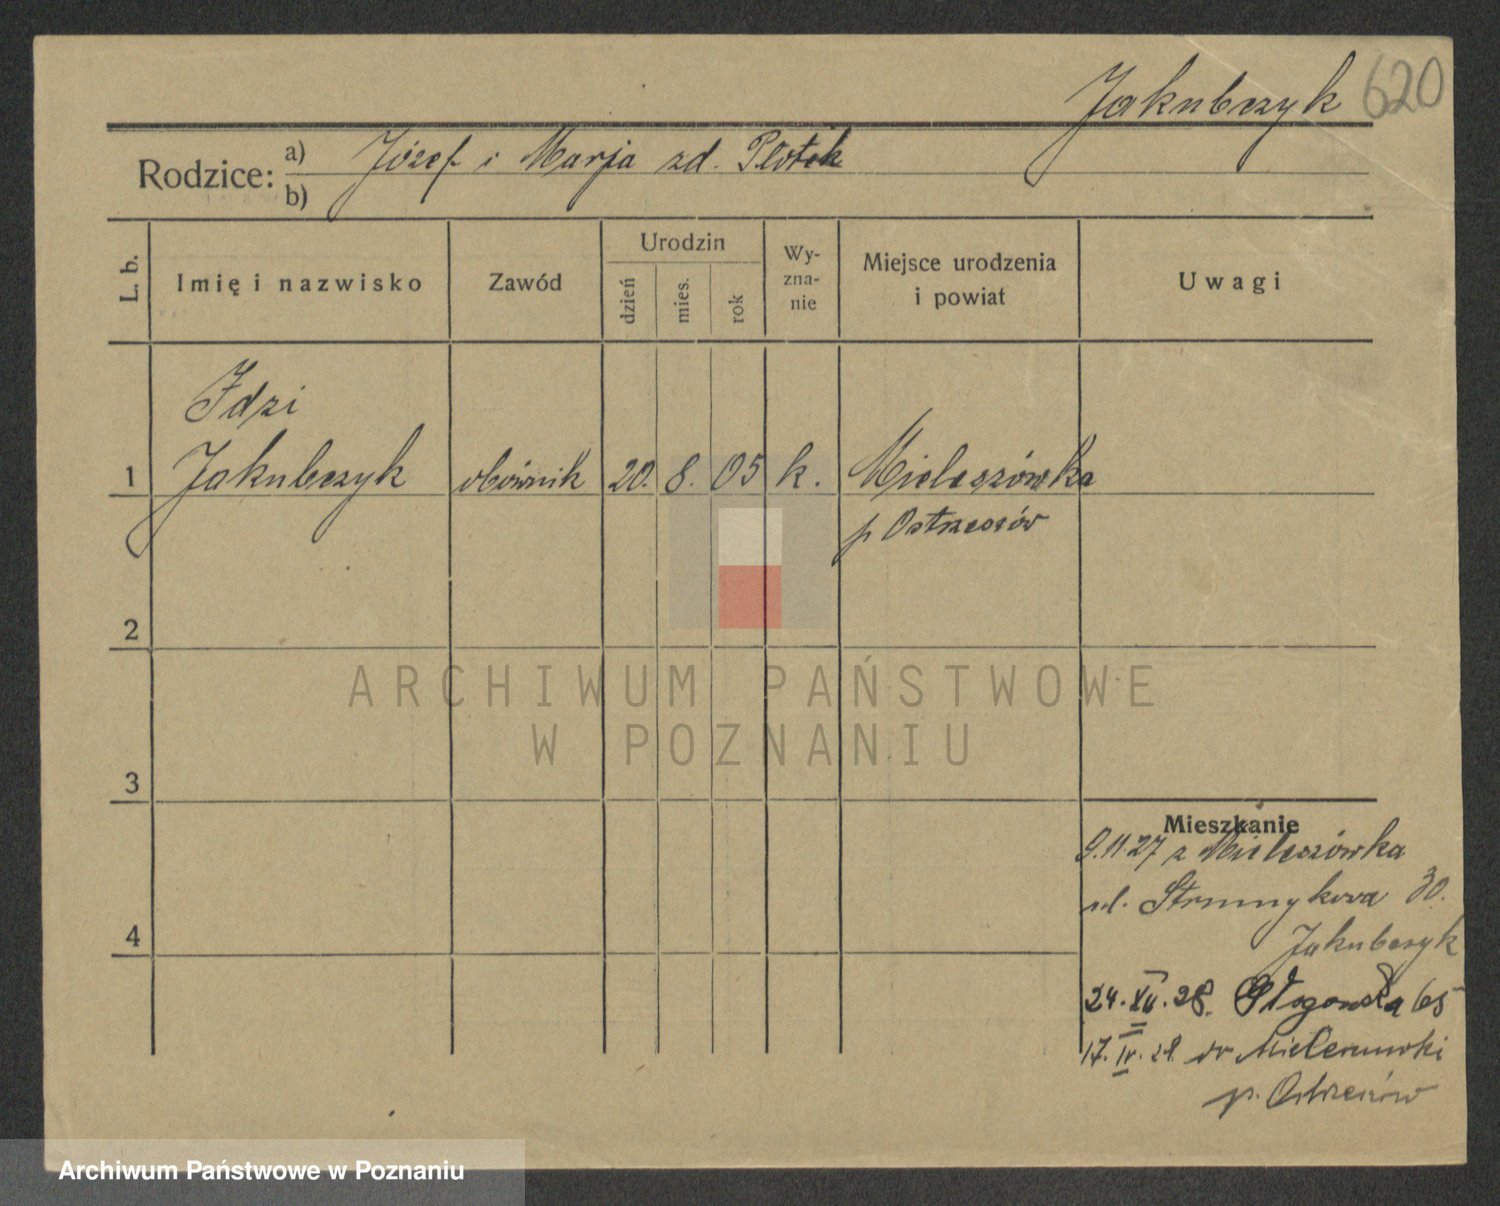 Jakubczyk 620
Rodzice: a) Józef i Marja zd. Plotek
b)
L. b. Imię i nazwisko Zawód Urodzin dzień mies. rok Wy-zna-nie Miejsce urodzenia i powiat Uwagi
Idzi
1 Jakubczyk obównik 20. 8. 05 k. Mieleszówka
p Ostrzeszów
2
ARCHIWUM PAŃSTWOWE
W POZNANIU
3
Mieszkanie
9.11.27 z Mieleszówka
ul. Strumykowa 30.
Jakubczyk
4
24. XII. 28. Głogowska 65
17. IV. 28. do
p. Ostrzeszów
Archiwum Państwowe w Poznaniu